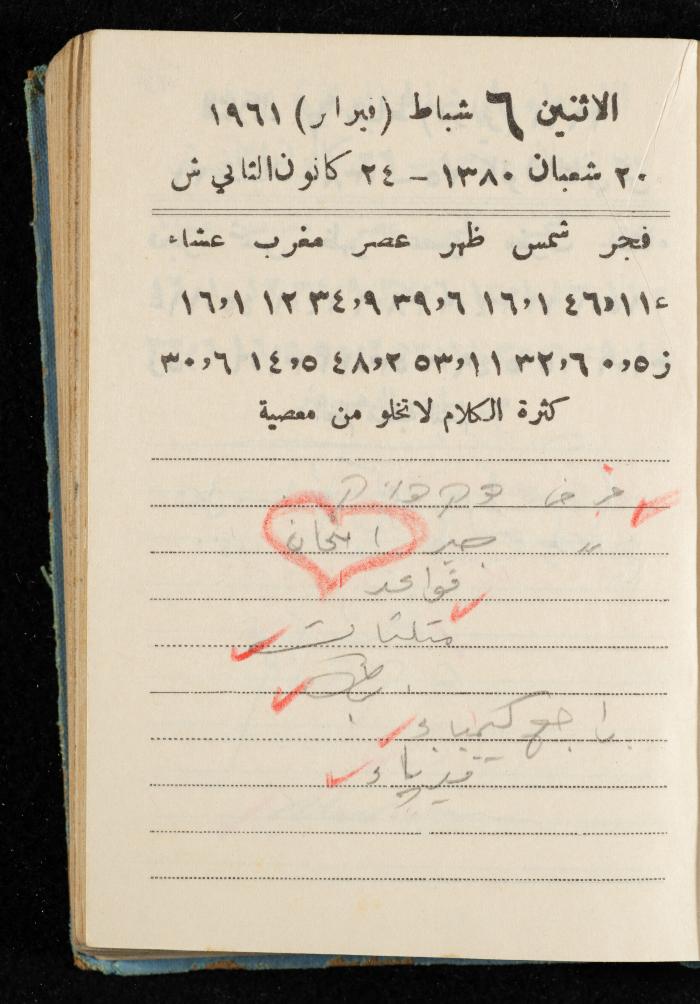 الاثنين ٦ شباط (فبراير) ١٩٦١
٢٠ شعبان ١٣٨٠ - ٢٤ كانون الثاني ش
فجر شمس ظهر عصر مغرب عشاء
١١،٤٦ ١،١٦ ٦،٣٩ ٩،٣٤ ١٢ ١،١٦
ز ٥،٠ ٦،٣٢ ١١،٥٣ ٢،٤٨ ٥،١٤ ٦،٣٠
كثرة الكلام لا تخلو من معصية
فرض
〃 جبر امتحان
قواعد
مثلثات
راجع كيمياء
فيزياء